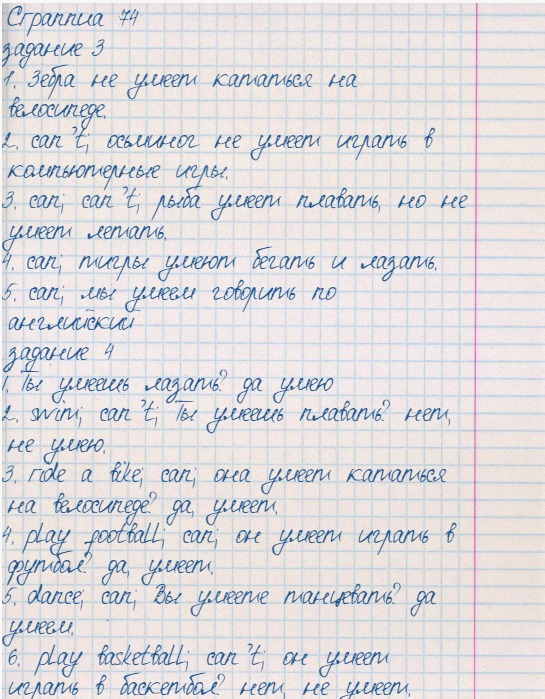 Страница 74
задание 3
1. Зебра не умеет кататься на
велосипеде.
2. can't; осьминог не умеет играть в
компьютерные игры.
3. can; can't; рыба умеет плавать, но не
умеет летать.
4. can; тигры умеют бегать и лазать.
5. can; мы умеем говорить по
английский
задание 4
1. Ты умеешь лазать? да умею
2. swim; can't; Ты умеешь плавать? нет,
не умею.
3. ride a bike; can; она умеет кататься
на велосипеде? да, умеет.
4. play football; can; он умеет играть в
футбол? да, умеет.
5. dance; can; Вы умеете танцевать? да
умеем.
6. play basketball; can't; он умеет
играть в баскетбол? нет, не умеет.